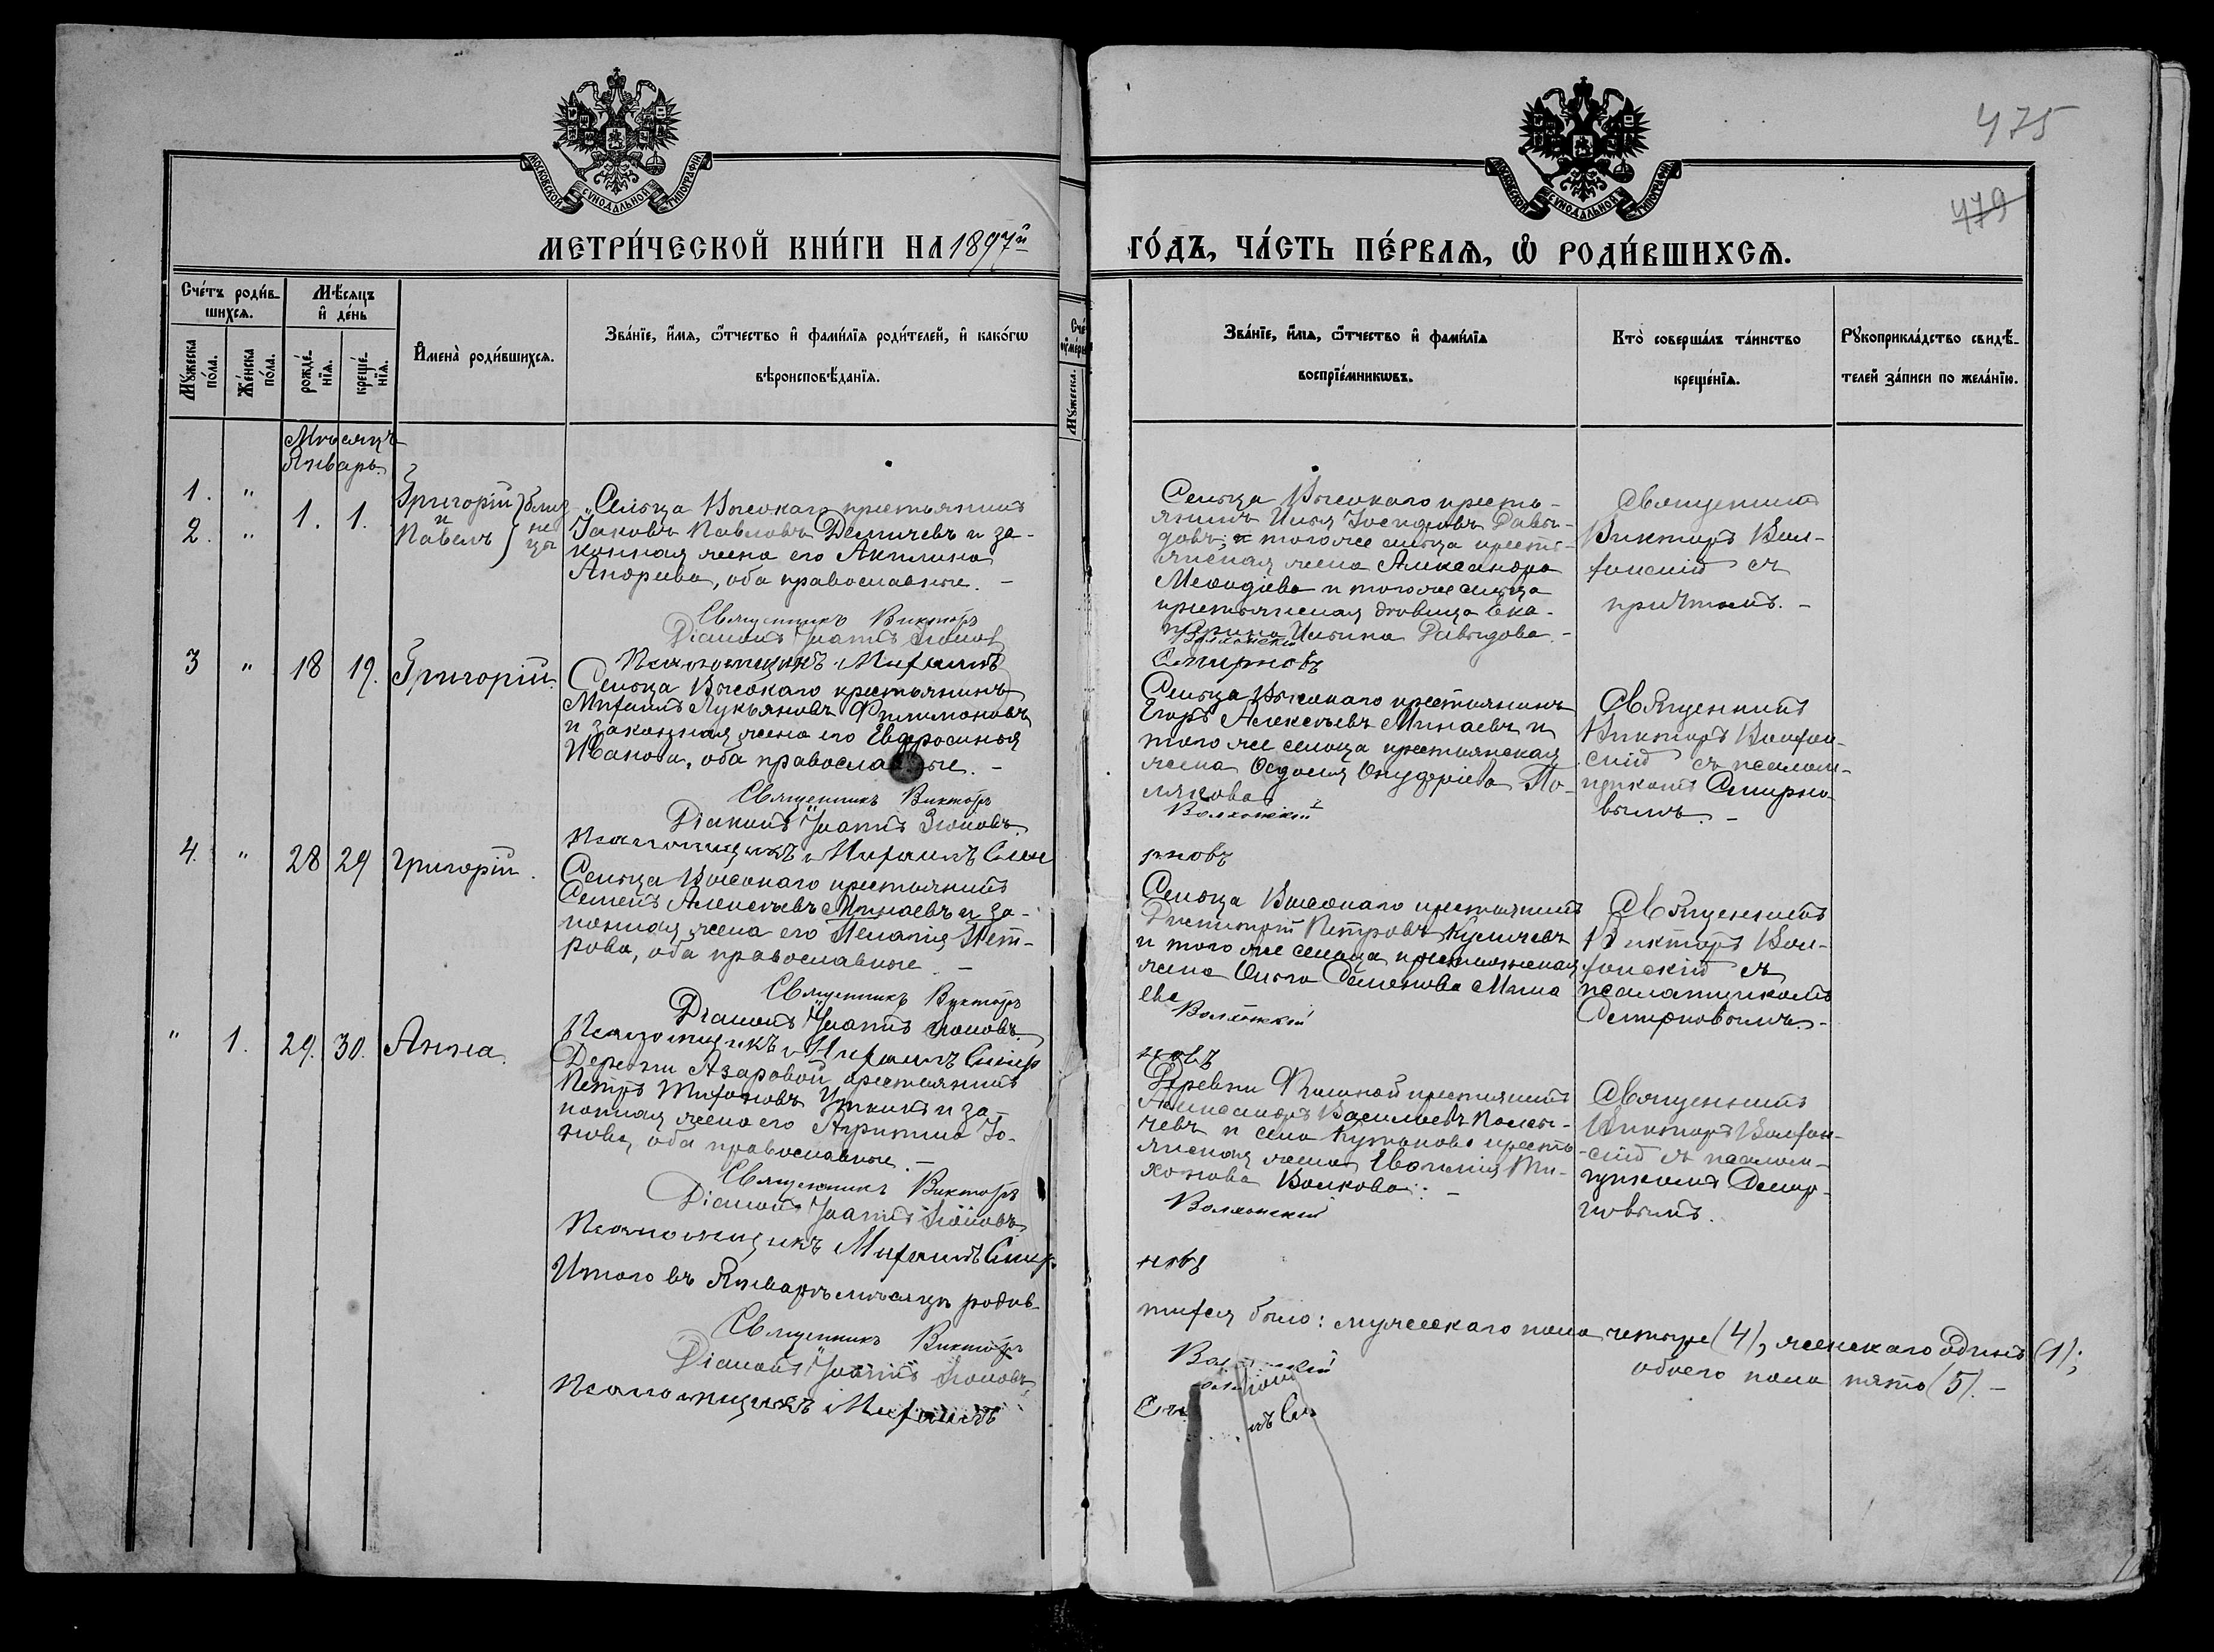 475
479
МОСКОВСКОЙ СѴНОДАЛЬНОЙ ТИПОГРАФІИ
МОСКОВСКОЙ СѴНОДАЛЬНОЙ ТИПОГРАФІИ
МЕТРИ́ЧЕСКОЙ КНИ́ГИ НА 1897й
ГО́ДЪ, ЧА́СТЬ ПЕ́РВАѦ, Ѡ҆ РОДИ́ВШИХСѦ.
Сче́тъ роди́в-
шихсѧ.
Мꙋ́жеска по́ла.
Же́нска по́ла.
Мѣ́сѧцъ
и҆ де́нь
рожде́нїѧ.
креще́нїѧ.
И҆мена̀ роди́вшихсѧ.
Зва́нїе, и҆́мѧ, ѻ҆́тчество и҆ фами́лїѧ роди́телей, и҆ како́гѡ
вѣроисповѣ́данїѧ.
Зва́нїе, и҆́мѧ, ѻ҆́тчество и҆ фами́лїѧ
воспрїе́мникѡвъ.
Кто̀ соверша́лъ та́инство
креще́нїѧ.
Рꙋкоприкла́дство свидѣ́-
телей за́писи по жела́нїю.
Мѣсяцъ
Январь
1. "
2. "
1. 1.
Григорій
и
Павелъ
близ
не
цы
Сельца Высокаго крестьянинъ
Іаковъ Павловъ Демичевъ и за-
конная жена его Акилина
Андреева, оба православные. -
Священникъ Викторъ
Діаконъ Іоаннъ
Псаломщикъ Михаилъ
Сельца Высокаго кресть-
янинъ Илья Іосифовъ Давы-
довъ; и того же сельца кресть-
янская жена Александра
Меѳодіева и того же сельца
крестьянская дѣвица Ека-
терина Ильина Давыдова. -
Волхонскій
Смирновъ
Священникъ
Викторъ Вол-
хонскій съ
причтомъ. -
3 " 18 19. Григорій.
Сельца Высокаго крестьянинъ
Михаилъ Лукьяновъ Филимоновъ
и законная жена его Евфросинья
Иванова, оба православные. -
Священникъ Викторъ
Діаконъ Іоаннъ
Псаломщикъ Михаилъ Сми
Сельца Высокаго крестьянинъ
Егоръ Алексѣевъ Минаевъ и
того же сельца крестьянская
жена Ѳедосія Онуфріева По-
лякова
Волхонскій
рновъ
Священникъ
Викторъ Волхон-
скій съ псалом-
щикомъ Смирно-
вымъ. -
4. " 28 29 Григорій.
Сельца Высокаго крестьянинъ
Семенъ Алексѣевъ Минаевъ и за-
конная жена его Пелагія Пет-
рова, оба православные. -
Священникъ Викторъ
Діаконъ Іоаннъ
Псаломщикъ Михаилъ Смир
Сельца Высокаго крестьянинъ
Петровъ
и того же сельца крестьянская
жена Ольга Семенова Мина
ева
Волхонскій
новъ
Священникъ
Викторъ Вол-
хонскій съ
псаломщикомъ
Смирновымъ. -
" 1. 29. 30. Анна.
Деревни Азаровой крестьянинъ
Петръ Тихоновъ Уткинъ и за-
конная жена его Агрипина Іо-
нова, оба православные. -
Священникъ Викторъ
Діаконъ Іоаннъ
Псаломщикъ Михаилъ Смир-
Деревни крестьянинъ
Александръ Васильевъ
чевъ и села кресть-
янская жена Евгенія Ти-
хонова Волкова. -
Волхонскій
новъ
Священникъ
Викторъ Волхон-
скій съ псалом-
щикомъ Смир-
новымъ.
Итого въ Январѣ мѣсяцѣ родив-
шихся было: мужескаго пола четыре (4), женскаго одинъ (1);
обоего пола пять (5). -
Священникъ Викторъ
Діаконъ Іоаннъ
Псаломщикъ Михаилъ